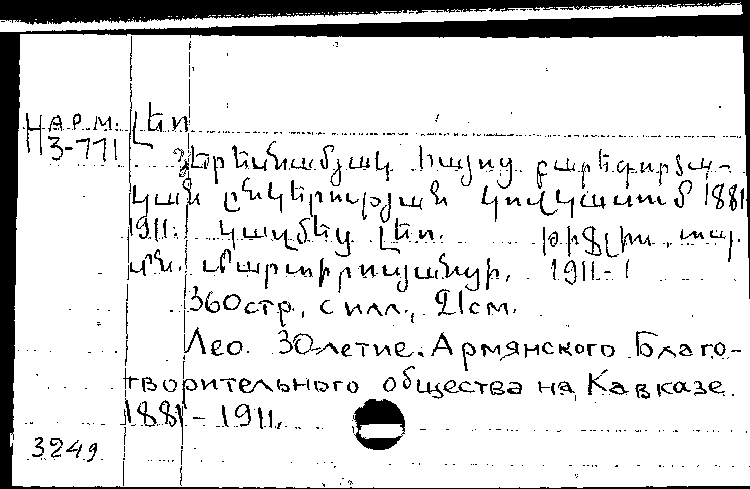 НАРМ. Լեո
Н3-771
Երեսնամյակ հայոց բարեգործա-
կան ընկերության կովկասում 1881
1911. կազմեց Լեո. թիֆլիս, տպ.
Մն. Մարտիրոսյանցի, 1911-
360стр, с илл., 21см.
Лео. 30-летие. Армянского Благо-
творительного общества на Кавказе.
1881-1911.
3249